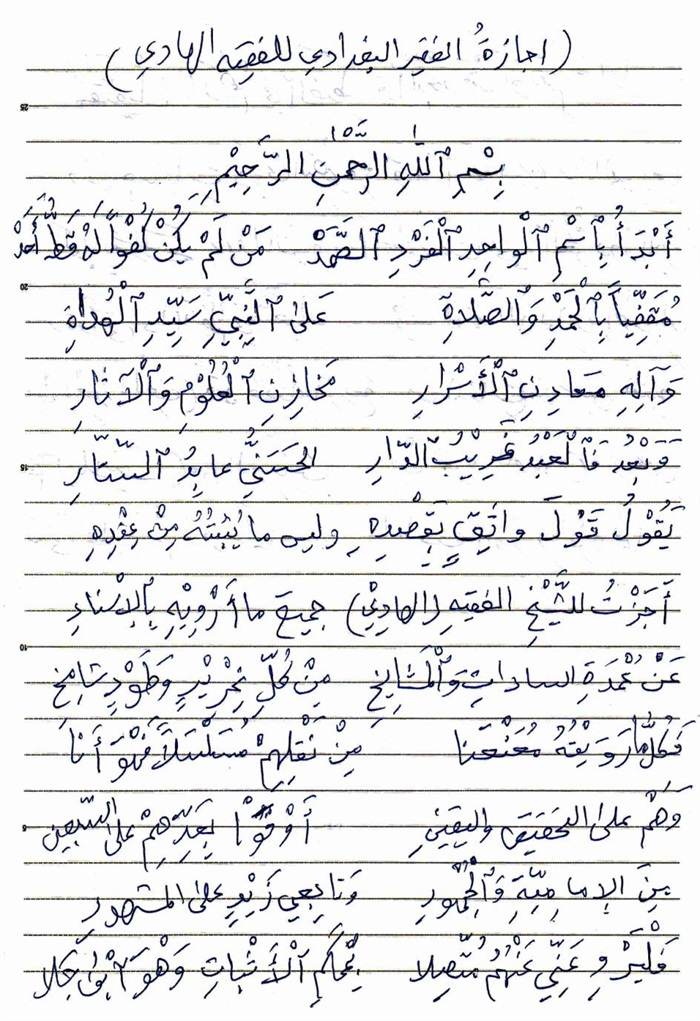 (اجازةُ الفقير البغدادي للفقيه الهادي)
بِسْمِ ٱللَّهِ الرَّحْمَٰنِ الرَّحِيْمِ
أَبْدَأُ بِٱسْمِ ٱلْواحِدِ ٱلْفَرْدِ ٱلصَّمَدْ مَنْ لَمْ يَكُنْ كُفْواً لهُ قَطُّ أَحَدْ
مُقَفِّياً بِٱلْحَمْدِ وَٱلصَّلاةِ عَلىٰ ٱلنَّبِيِّ سَيِّدِ ٱلْهُداةِ
وَآلِهِ مَعادِنِ ٱلْأَسْرارِ مَخازِنِ ٱلْعُلُوْمِ وَٱلْآثارِ
وَبَعْدُ فَٱلْعَبْدُ غَرِيْبُ الدّارِ الحَسَنيُّ عابِدُ السّتّارِ
يَقُوْلُ قَوْلَ واثِقٍ بِقَصْدِهِ وليس ما يُثْبِتُهُ مِنْ عِقْدِهِ
أَجَزْتُ للشَّيْخِ الفقيهِ (الهادِيْ) جميعَ ما أَرْوِيْهِ بِالاِسْنادِ
عَنْ عُمْدَةِ السّاداتِ وَٱلْمَشايِخِ مِنْ كُلِّ نِحْرِيْرٍ وَطَوْدٍ شامِخِ
فَكُلُّ ما رَوَيْتُهُ مُعَنْعَنا مِنْ نَقْلِهِمْ مُسَلْسَلاً فَهْوَ أَنا
وَهُمْ علىٰ التحقيقِ واليقينِ أَوْفَوْا بِعَدِّهِمْ على السّبعينِ
مِنَ الإماميَّةِ وَٱلْجُمْهُورِ وَتابِعي زَيْدٍ علىٰ المشهورِ
فَلْيَرْوِ عَنِّي عَنْهُمُ مُتَّصِلا بِمُحْكَمِ ٱلْأَثْباتِ وَهْوَ ٱبْنُ جَلا